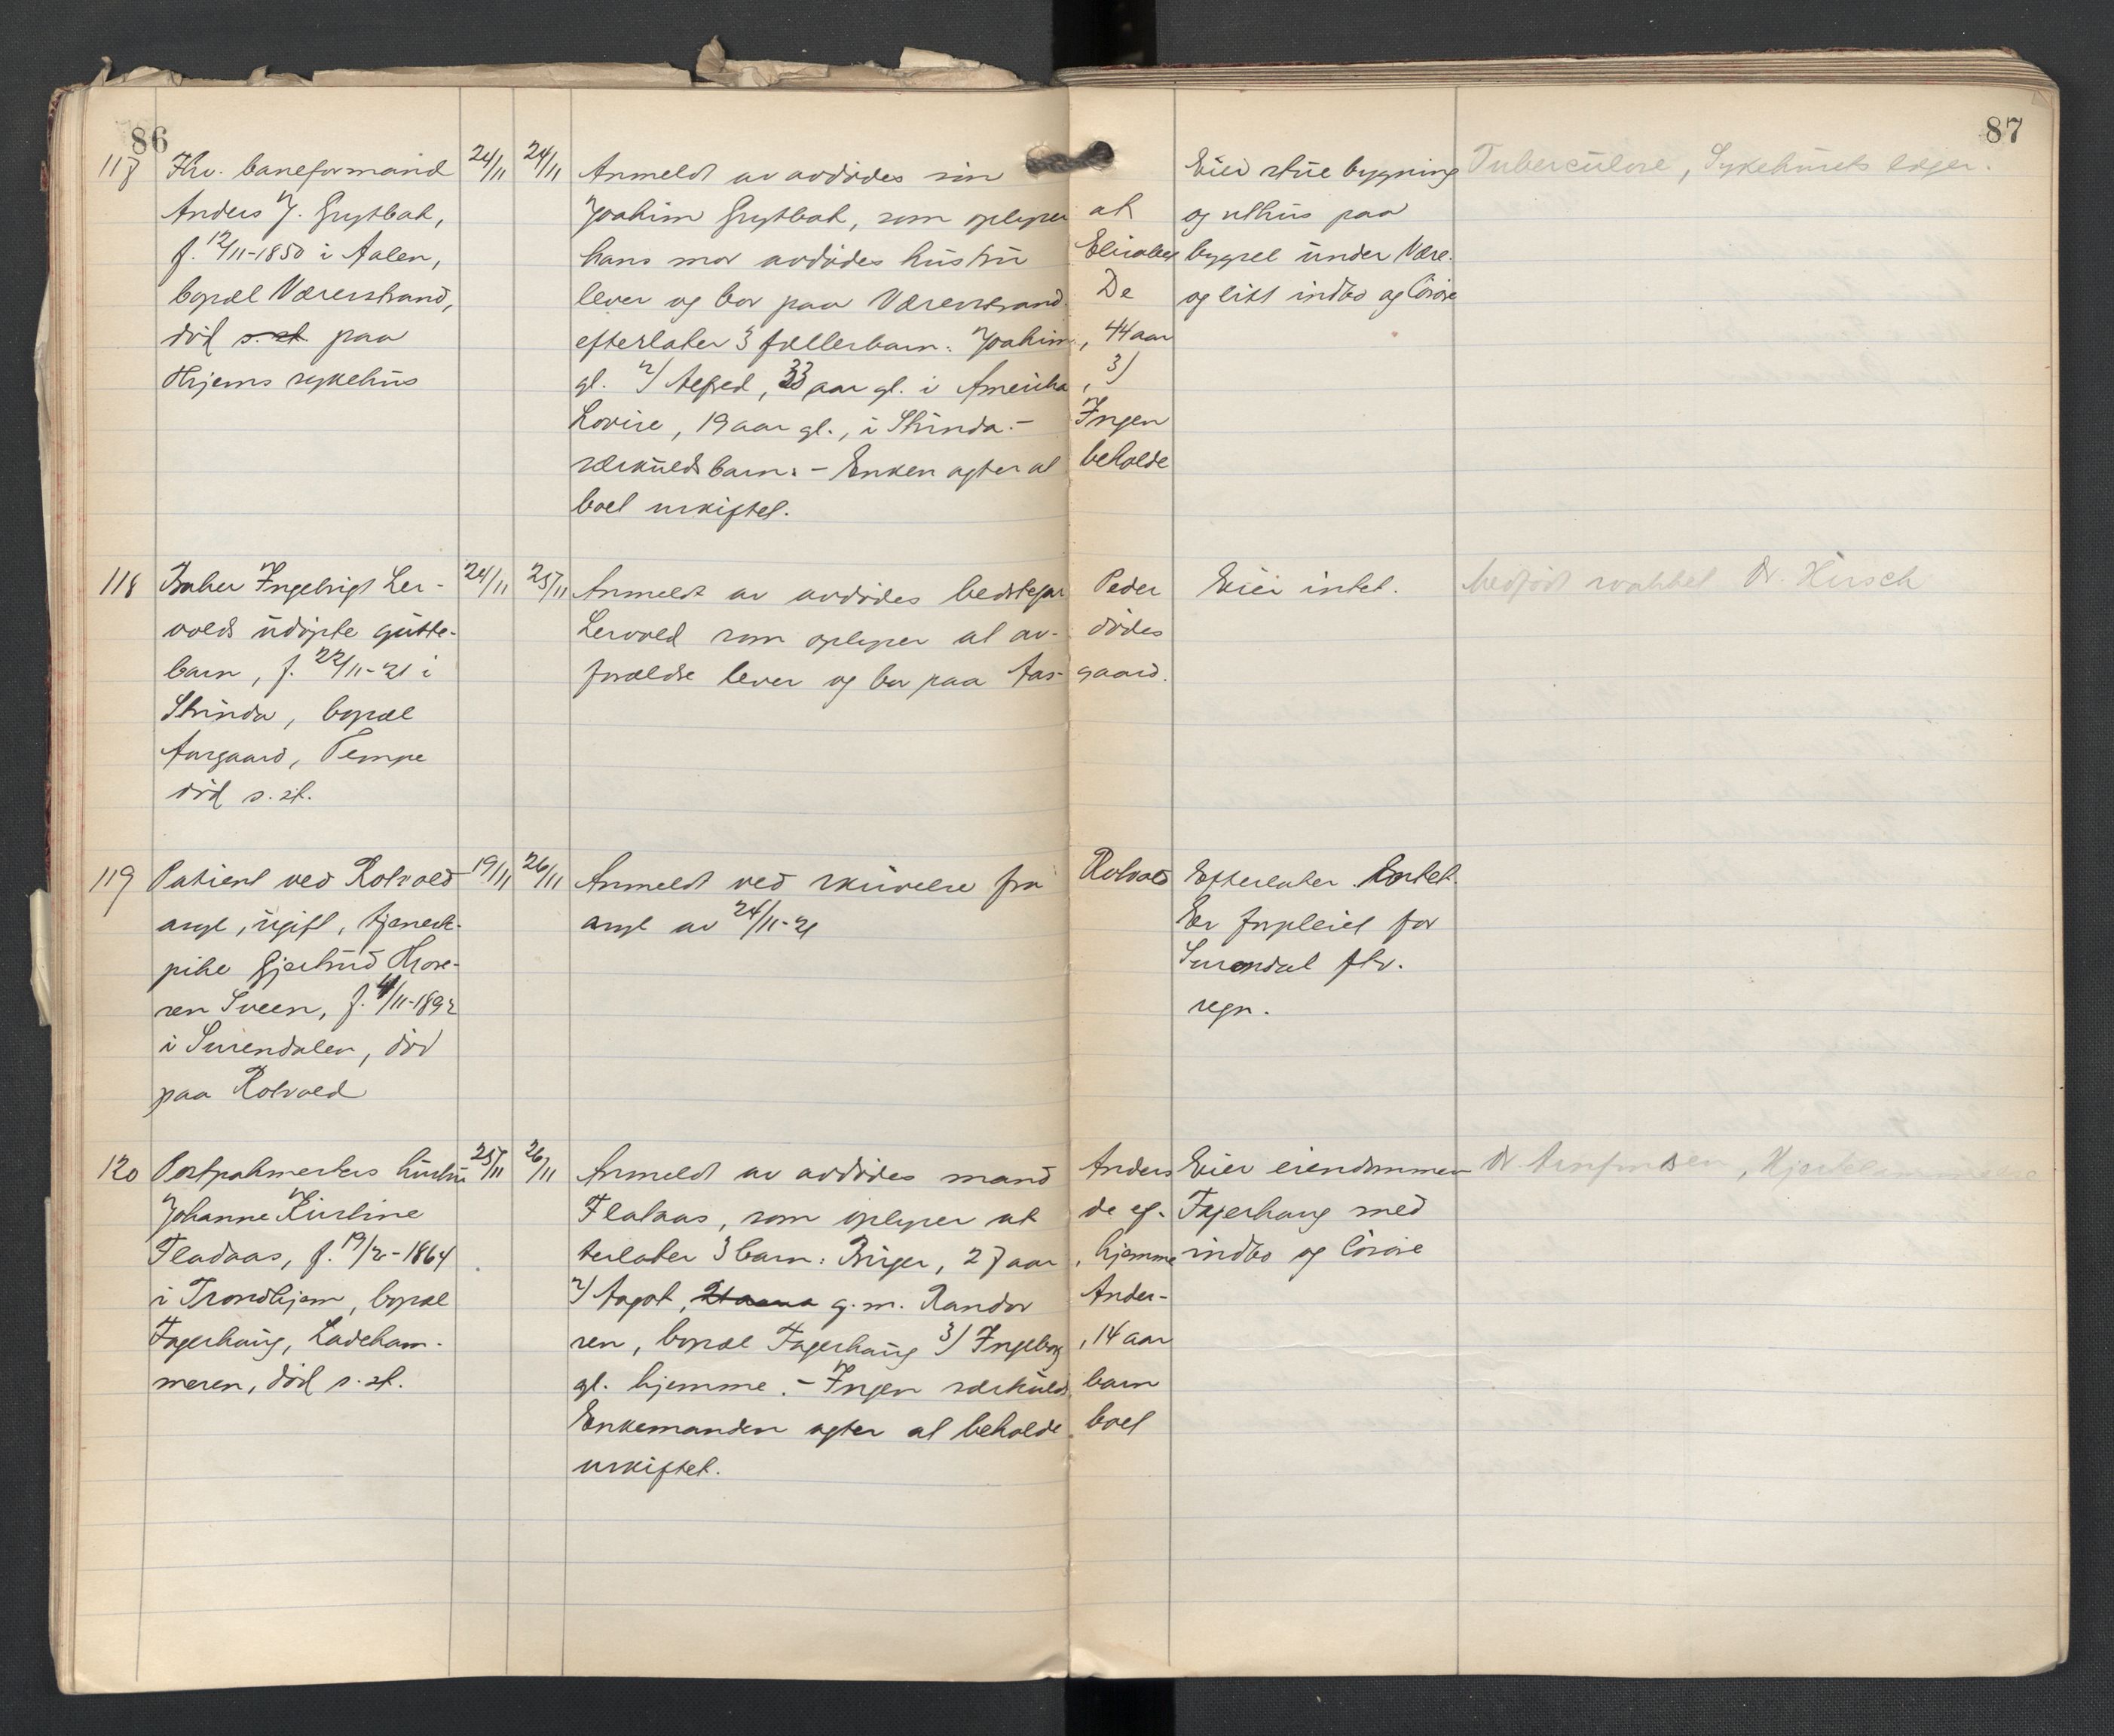 86
87
117 Fhv. baneformand 24/11 24/11 Anmeldt av avdødes søn Eier stue bygning Tuberculose, Sykehusets læger.
Anders J. Grytbak, Joakim Grytbak, som oplyser at og uthus paa
f. 12/11-1850 i Aalen, hans mor avdødes hustru Elisabet bygsel under Være.
bopæl Væresstrand, lever og bor paa Væresstrand. De og litt indbo og løsøre
død s. st. paa efterlater 3 fællesbarn: Joakim, 44 aar
Thjems sykehus gl. 2/ Alfred, 33 aar gl. i Amerika, 3/
Lovise, 19 aar gl., i Strinda.- Ingen
særkuldsbarn. - Enken agter at beholde
boet uskiftet.
118 Baker Ingebrigt Ler- 24/11 25/11 Anmeldt av avdødes bedstefar Peder Eier intet. Medfødt svakhet Dr. Hirsch
volds udøpte gutte- Lervold som oplyser at av- dødes
barn, f. 22/11-21 i forældre lever og bor paa Aas- gaard.
Strinda, bopæl
Aasgaard, Tempe
død s. st.
119 Patient ved Rotvold 19/11 26/11 Anmeldt ved skrivelse fra Rotvold Efterlater Intet.
asyl, ugift, tjeneste- asyl av 24/11-21 Er forpleiet for
pike Gjertrud Thore- Surendal fkv.
sen Sveen, f. 4/11-1892 regn.
i Surendalen, død
paa Rotvold
120 Postpakmesters hustru 25/11 26/11 Anmeldt av avdødes mand Anders Eier eiendommen Dr. , Hjertelammelse
Johanne Kirstine Fladaas, som oplyser at de ef- Fagerhaug med
Fladaas, f. 19/2-1864 terlater 3 barn: Birger, 27 aar, hjemme indbo og løsøre
i Trondhjem, bopæl 2/ Aagot, 21 aar g. m. Randor Ander-
Fagerhaug, Ladeham- sen, bopæl Fagerhaug 3/ Ingeborg, 14 aar
meren, død s. st. gl. hjemme. - Ingen særkulds barn
Enkemanden agter at beholde boet
uskiftet.